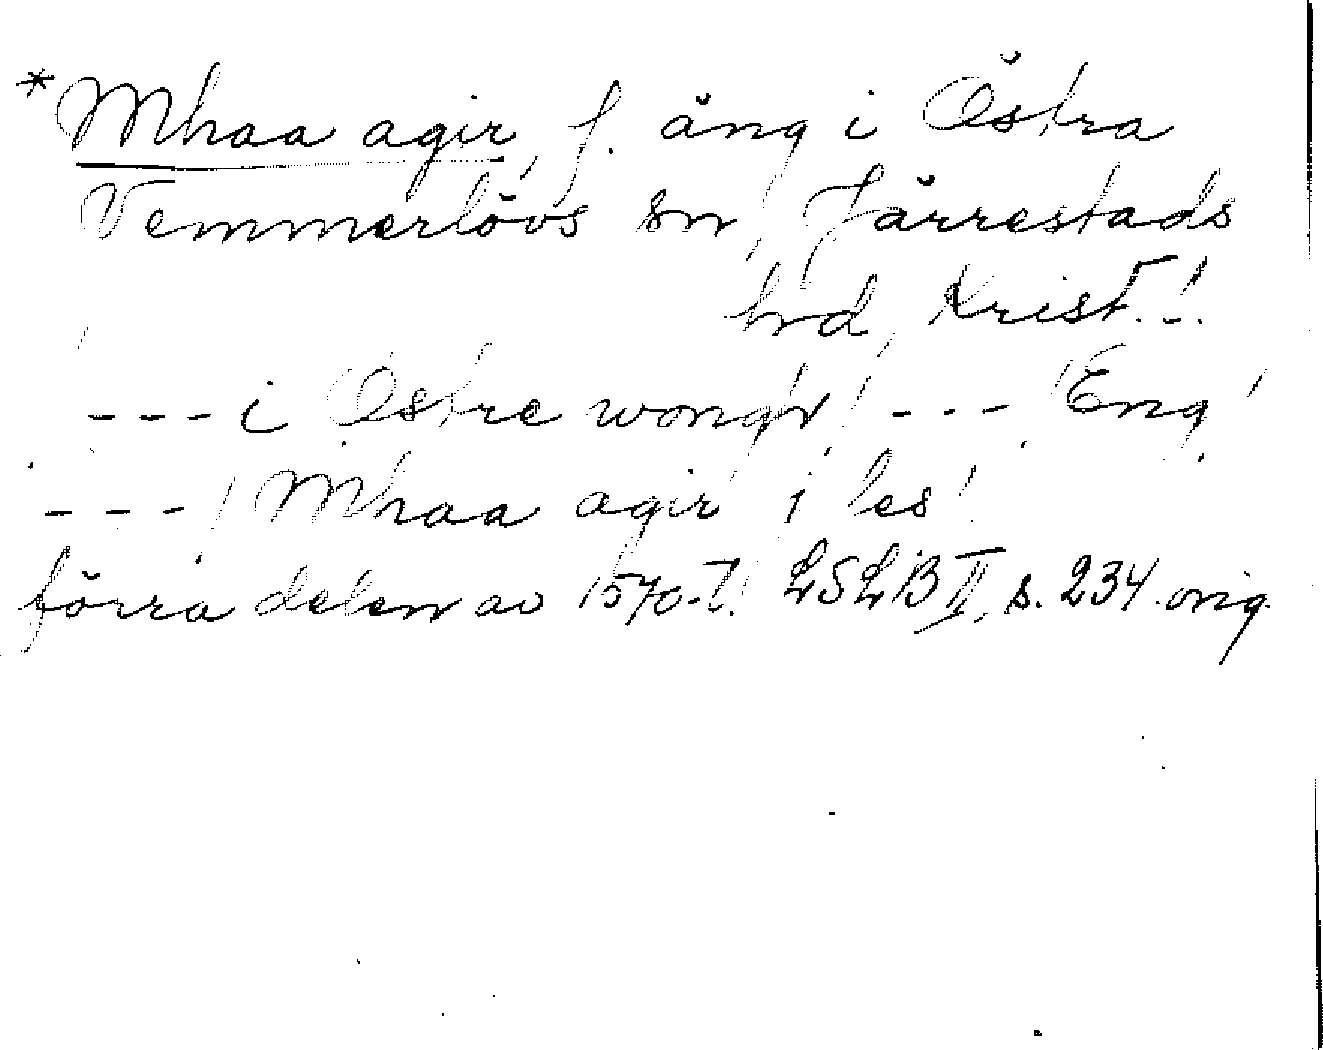 *Mhaa agir, f. äng i Östra
Vemmerlövs sn, Järrestads
hrd, Krist.!
--- i Ostre wongh / --- Eng /
--- / Mhaa agir j les /
förra delen av 1570-t. LSLB II, s. 234 orig.